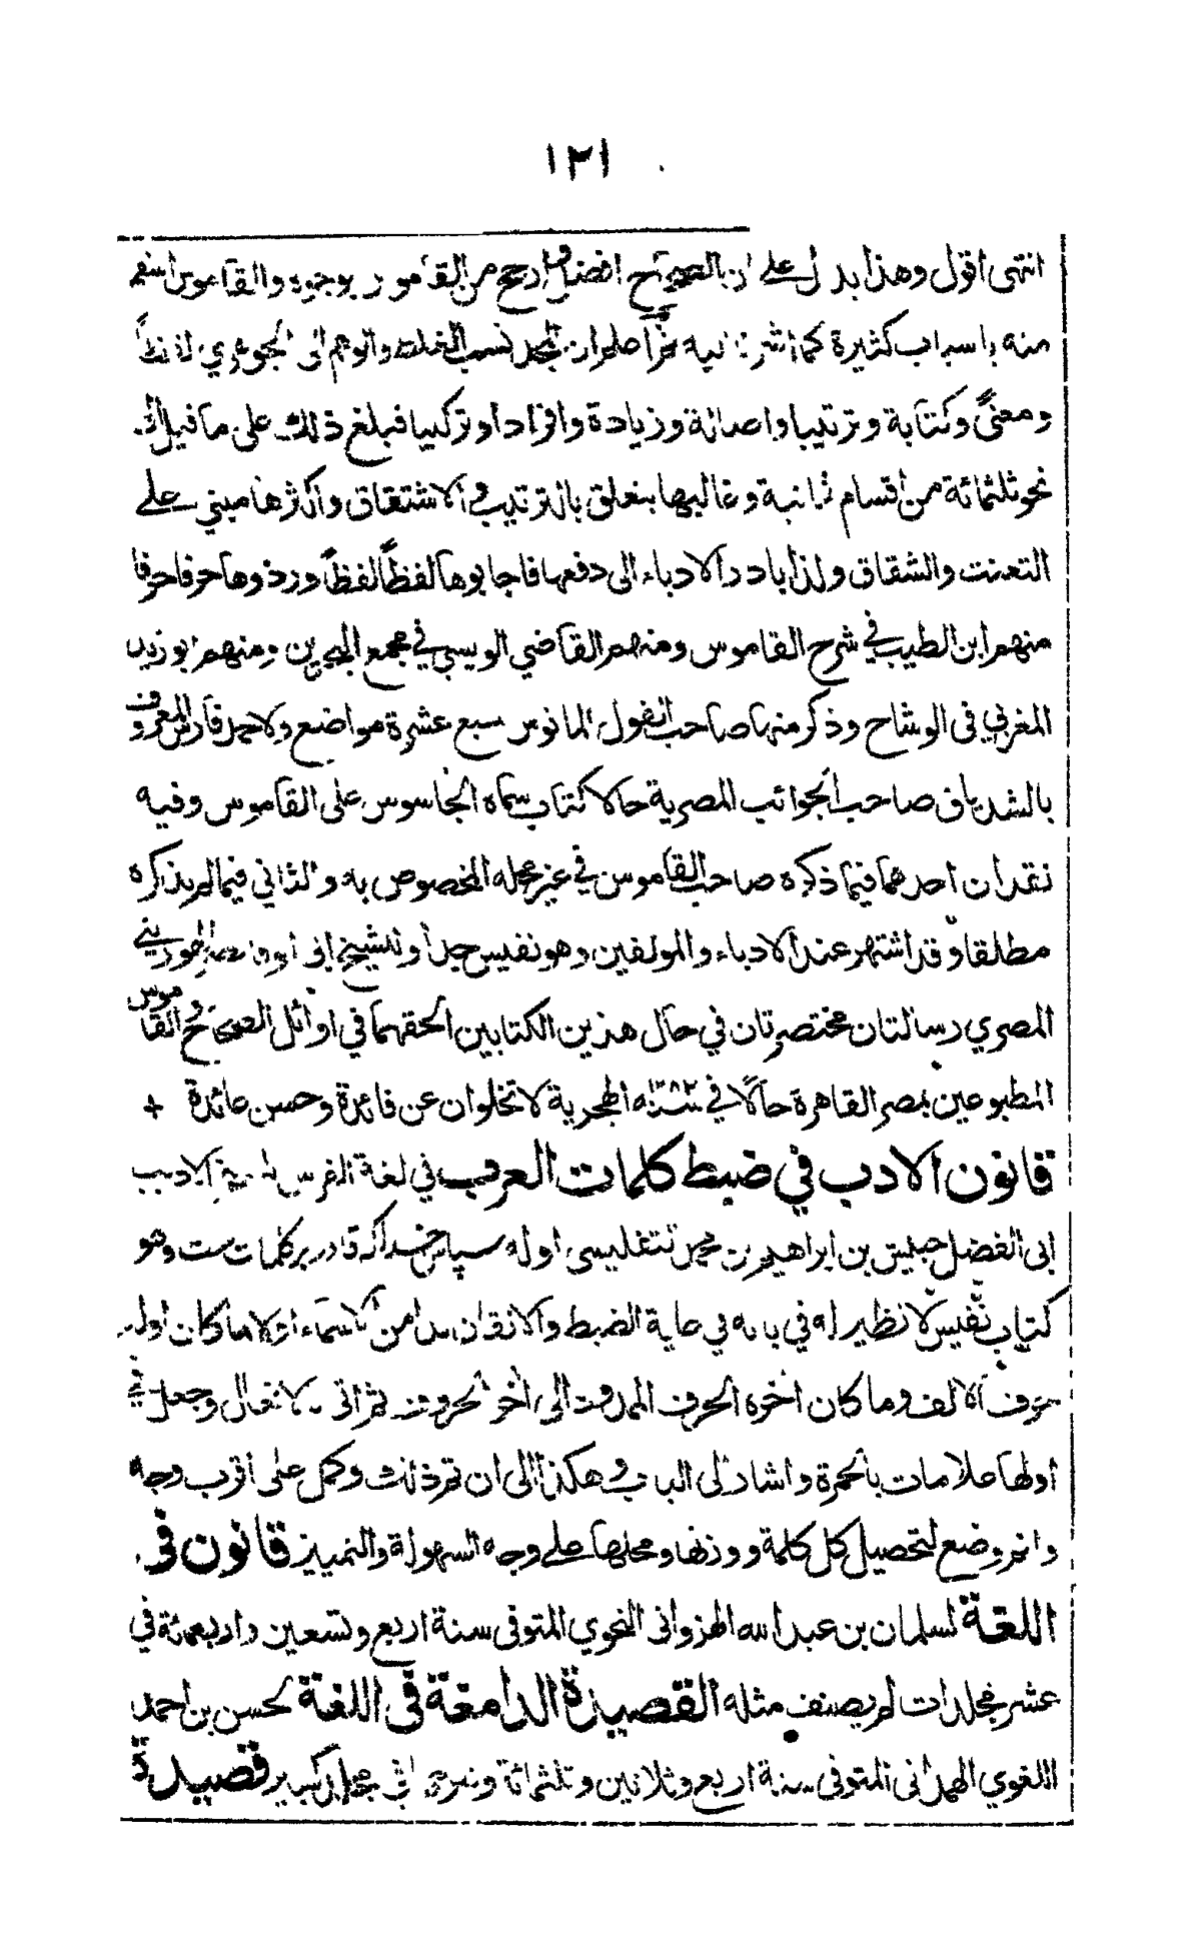 ١٢١
انتهى اقول وهذا يدل على ان الصحاح افضل وارجح من القاموس بوجوه والقاموس
منه باسباب كثيرة كما اشرنا اليه المجد نسب الغلط والوهم الى الجوهري لفظاً
ومعنىً وكتابة وترتيبا واصالة وزيادة وافرادا وتركيبا فبلغ ذلك على ما قيل الى
نحو ثلثمائة من اقسام ثمانية وغالبها يتعلق بالترتيب والاشتقاق واكثرها مبني على
التعنت والشقاق ولذا بادر الادباء الى دفعها فاجابوها لفظاً لفظاً وردوها حرفا حرفا
منهم ابن الطيب في شرح القاموس ومنهم القاضي الويسي في مجمع البحرين ومنهم ابو زيد
المغربي في الوشاح وذكر منها صاحب القول المانوس سبع عشرة مواضع ولاحمد فارس المعروف
بالشدياق صاحب الجوائب المصرية حالا كتاب سماه الجاسوس على القاموس وفيه
نقدان احدهما فيما ذكره صاحب القاموس في غير محله المخصوص به والثاني فيما لم يذكره
مطلقا وقد اشتهر عند الادباء والمولفين وهو نفيس جدا وللشيخ ابي الوفا نصر الهوريني
المصري رسالتان مختصرتان في حال هذين الكتابين الحقهما في اوائل الصحاح والقاموس
المطبوعين بمصر القاهرة حالًا في الهجرية لا تخلوان عن فائدة وحسن عائدة +
قانون الادب في ضبط كلمات العرب في لغة الفرس للشيخ الاديب
ابي الفضل حبيش بن ابراهيم بن محمد التتفليسي اوله سپاس خداكه قادر بركلمات ست وهو
كتاب نفيس لا نظير له في بابه في غاية الضبط والاتقان بدا من الاسماء اولا ما كان اوله
حرف الالف وما كان اخره الحرف الممدود الى اخر الحروف ثم اتى بالافعال وجعل في
اولها علامات بالحمرة واشار الى الباب وهكذا الى ان تم ذلك وكمل على اقرب وجه
وانه وضع لتحصيل كل كلمة ووزنها ومحلها على وجه السهولة والتمييز قانون في
اللغة لسلمان بن عبد الله الهزواني النحوي المتوفى سنة اربع وتسعين واربعمئة في
عشر مجلدات لم يصنف مثله القصيدة الدامغة في اللغة لحسن بن احمد
اللغوي الهمداني المتوفى سنة اربع وثلاثين وثلثمائة وشرحها في مجلد كبير قصيدة